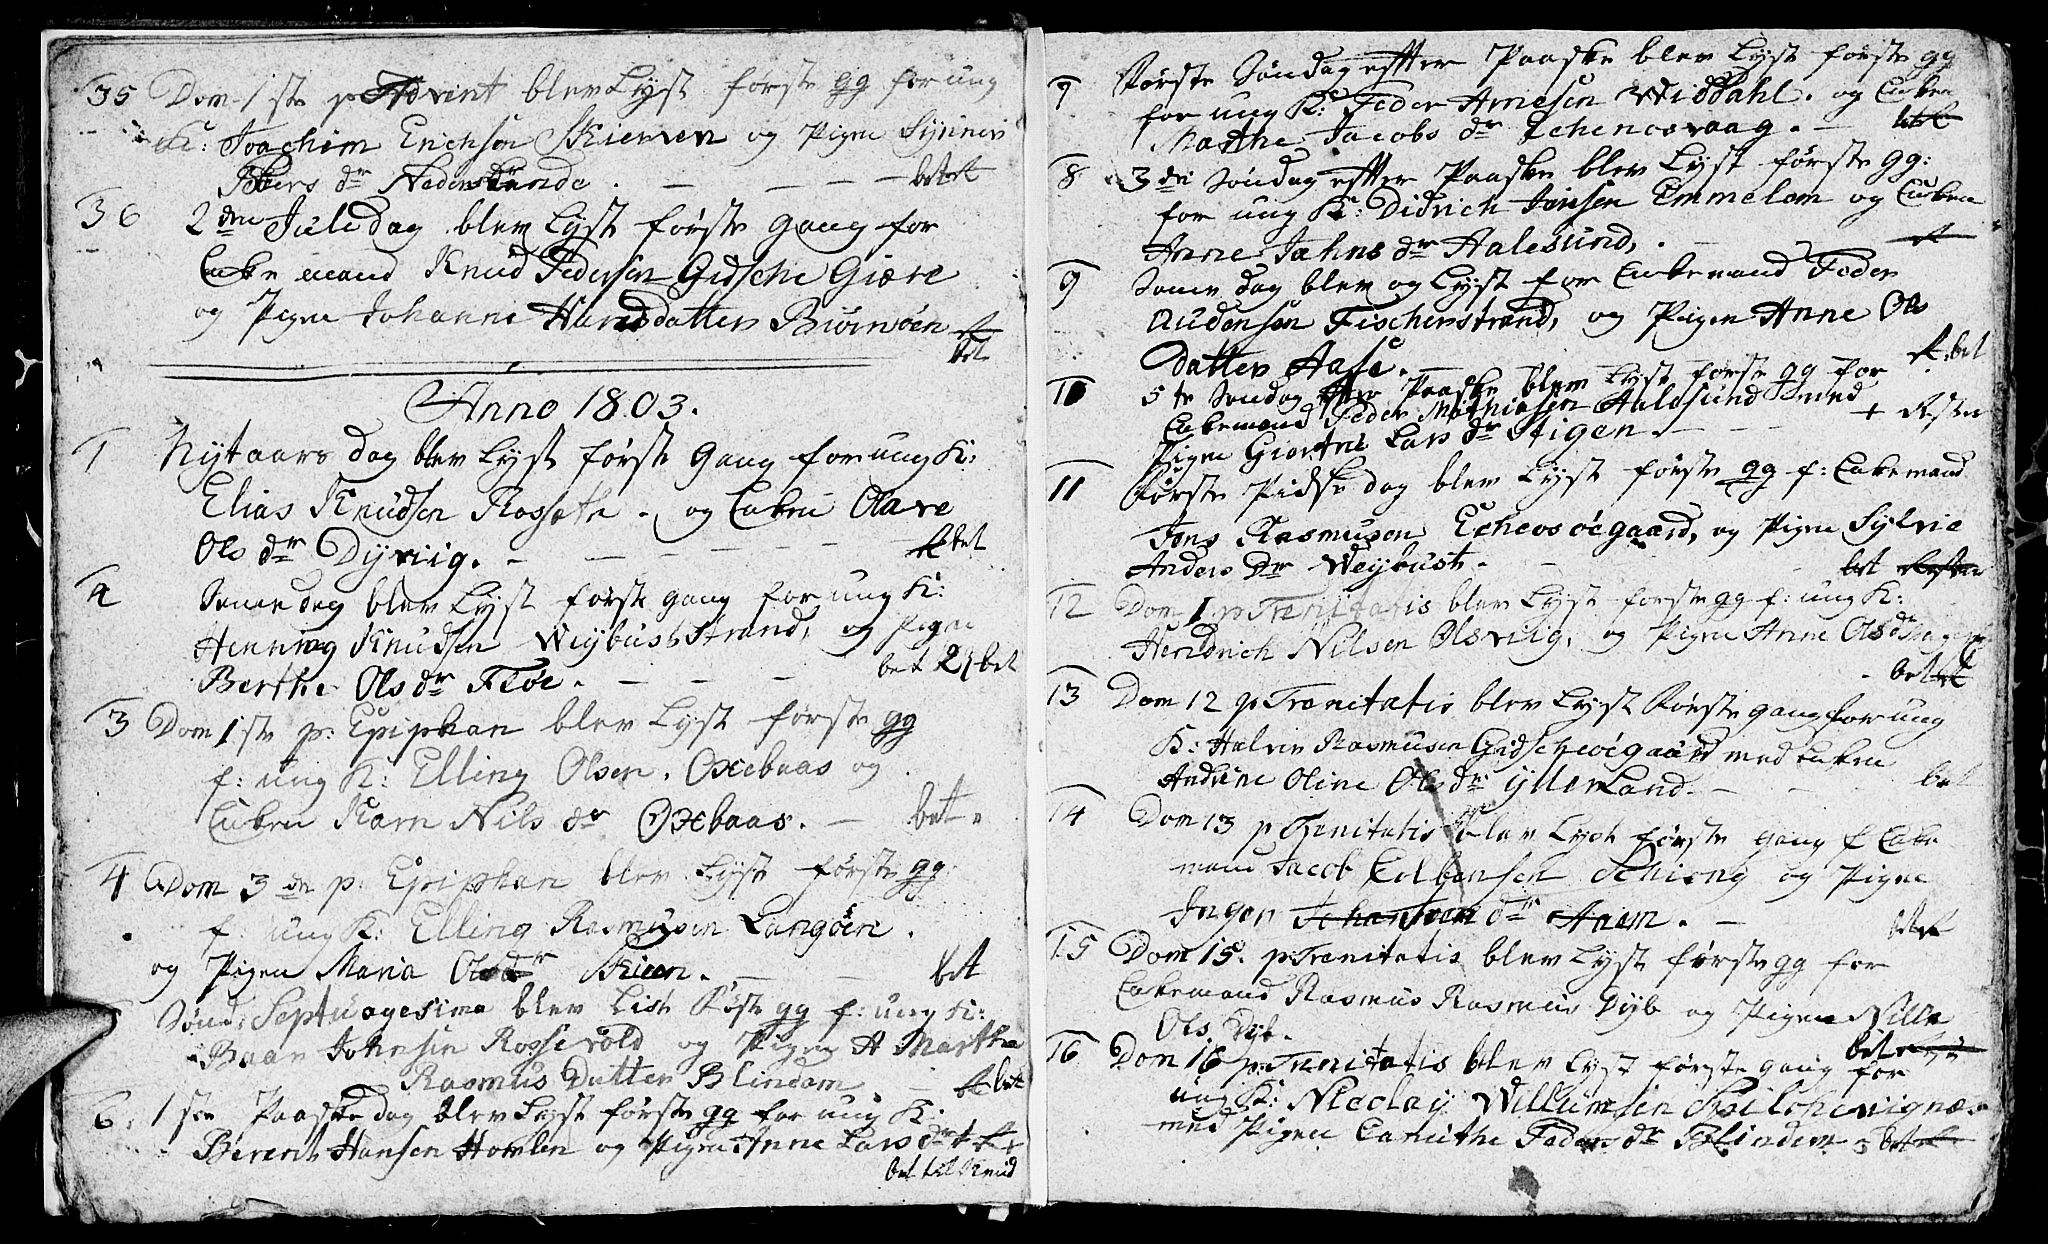 35 Dom 1ste p Advent blev Lyst første gg for ung
K: Joachim Erichsen Skieren og Pigen Synnev
Peders dr Nederstrande. — — — — betalt
36 2den Juledag blev Lyst første Gang for
Enke mand Knud Pedersen Gidsche Giære
og Pigen Johanne Hansdatter Biørnøen
bet
Anno 1803.
1 Nytaars dag blev Lyst første Gang for ung K:
Elias Knudsen Rossete. og Enken Olave
Ols dr Dyrviig. — — — — — bet
2 Samme dag blev Lyst første gang for ung K:
Henning Knudsen Weybust Strand, og Pigen
Berthe Ols dr Fløe. — — — bet 2 bet
3 Dom 1ste p. Epiphan blev Lyst første gg
f: ung K: Elling Olsen. Oxebaas og
Enken Karn Nils dr Oxebaas. — bet
4 Dom 3de p. Epiphan blev Lyst første gg
f: ung K: Elling Rasmusen Langøen.
og Pigen Maria Ols dr Skieen. — — bet
Sønd: Septuagesima blev List Føste gg f: ung K:
Baar Johnsen Rossevold og Pigen Martha
Rasmus Datter Blindem — bet
6: 1ste Paaskedag blev Lyst første gg for ung K:
Berent Hansen Homlen og Pigen Anne Lars dr
bet til Knud
7 Første Søndag effter Paaske blev Lyst første gg
for ung K: Peder Arnesen Widdahl. og Enken
Marthe Jacobs dr Echenosvaag. —
8 3die Søndag effter Paaske blev Lyst første gg:
for ung K: Didrich Jonsen Emmelem og Enken
Anne Johns dr Aalesund, . —
9 Samme dag blev og Lyst for Enkemand Peder
Audensen Fischerstrand, og Pigen Anne Ols
Datter Aase. — bet
10 5te Søndag effter Paaske blev Lyst første gg for
Enkemand Peder Mathiasen Aalesund med
Pigen Giertrue Lars dr Stigen. — — — + Rester
11 Første Pidse dag blev Lyst første gg f: Enkemand
Jens Rasmusen Echenosøegaard, og Pigen Sylvie
Anders Dr Weybust. — bet
12 Dom 1 p Trenitatis blev Lyst første gg f: ung K:
Hendrich Nilsen Olsviig, og Pigen Anne Ols dr
bet
13 Dom 12 p Trenitatis blev Lyst Første gang for ung
K: Halvin Rasmusen Gidscheøegaard med Enken
Andrine Oline Ols dr Ytterland. — — bet
14 Dom 13 p Trenitatis blev Lyst første gang f Enke
mand Jacob Colbensen Schiong og Pigen
Inger dr Aaem. —
15 Dom 15. p: Trenitatis blev Lyst første gg for
Enkemand Rasmus Rasmus Dyb og Pigen Nille
Ols. Dyb.
bet
16 Dom 16 p. Trenitatis blev Lyst første gang for
ung K: Nicolay Willumsen
med Pigen Cathrithe Peders dr Blindem bet